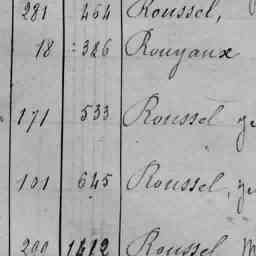 281 464 Roussel,
18 326 Rouyaux
171 533 Roussel
101 645 Roussel,
290 1412 Roussel